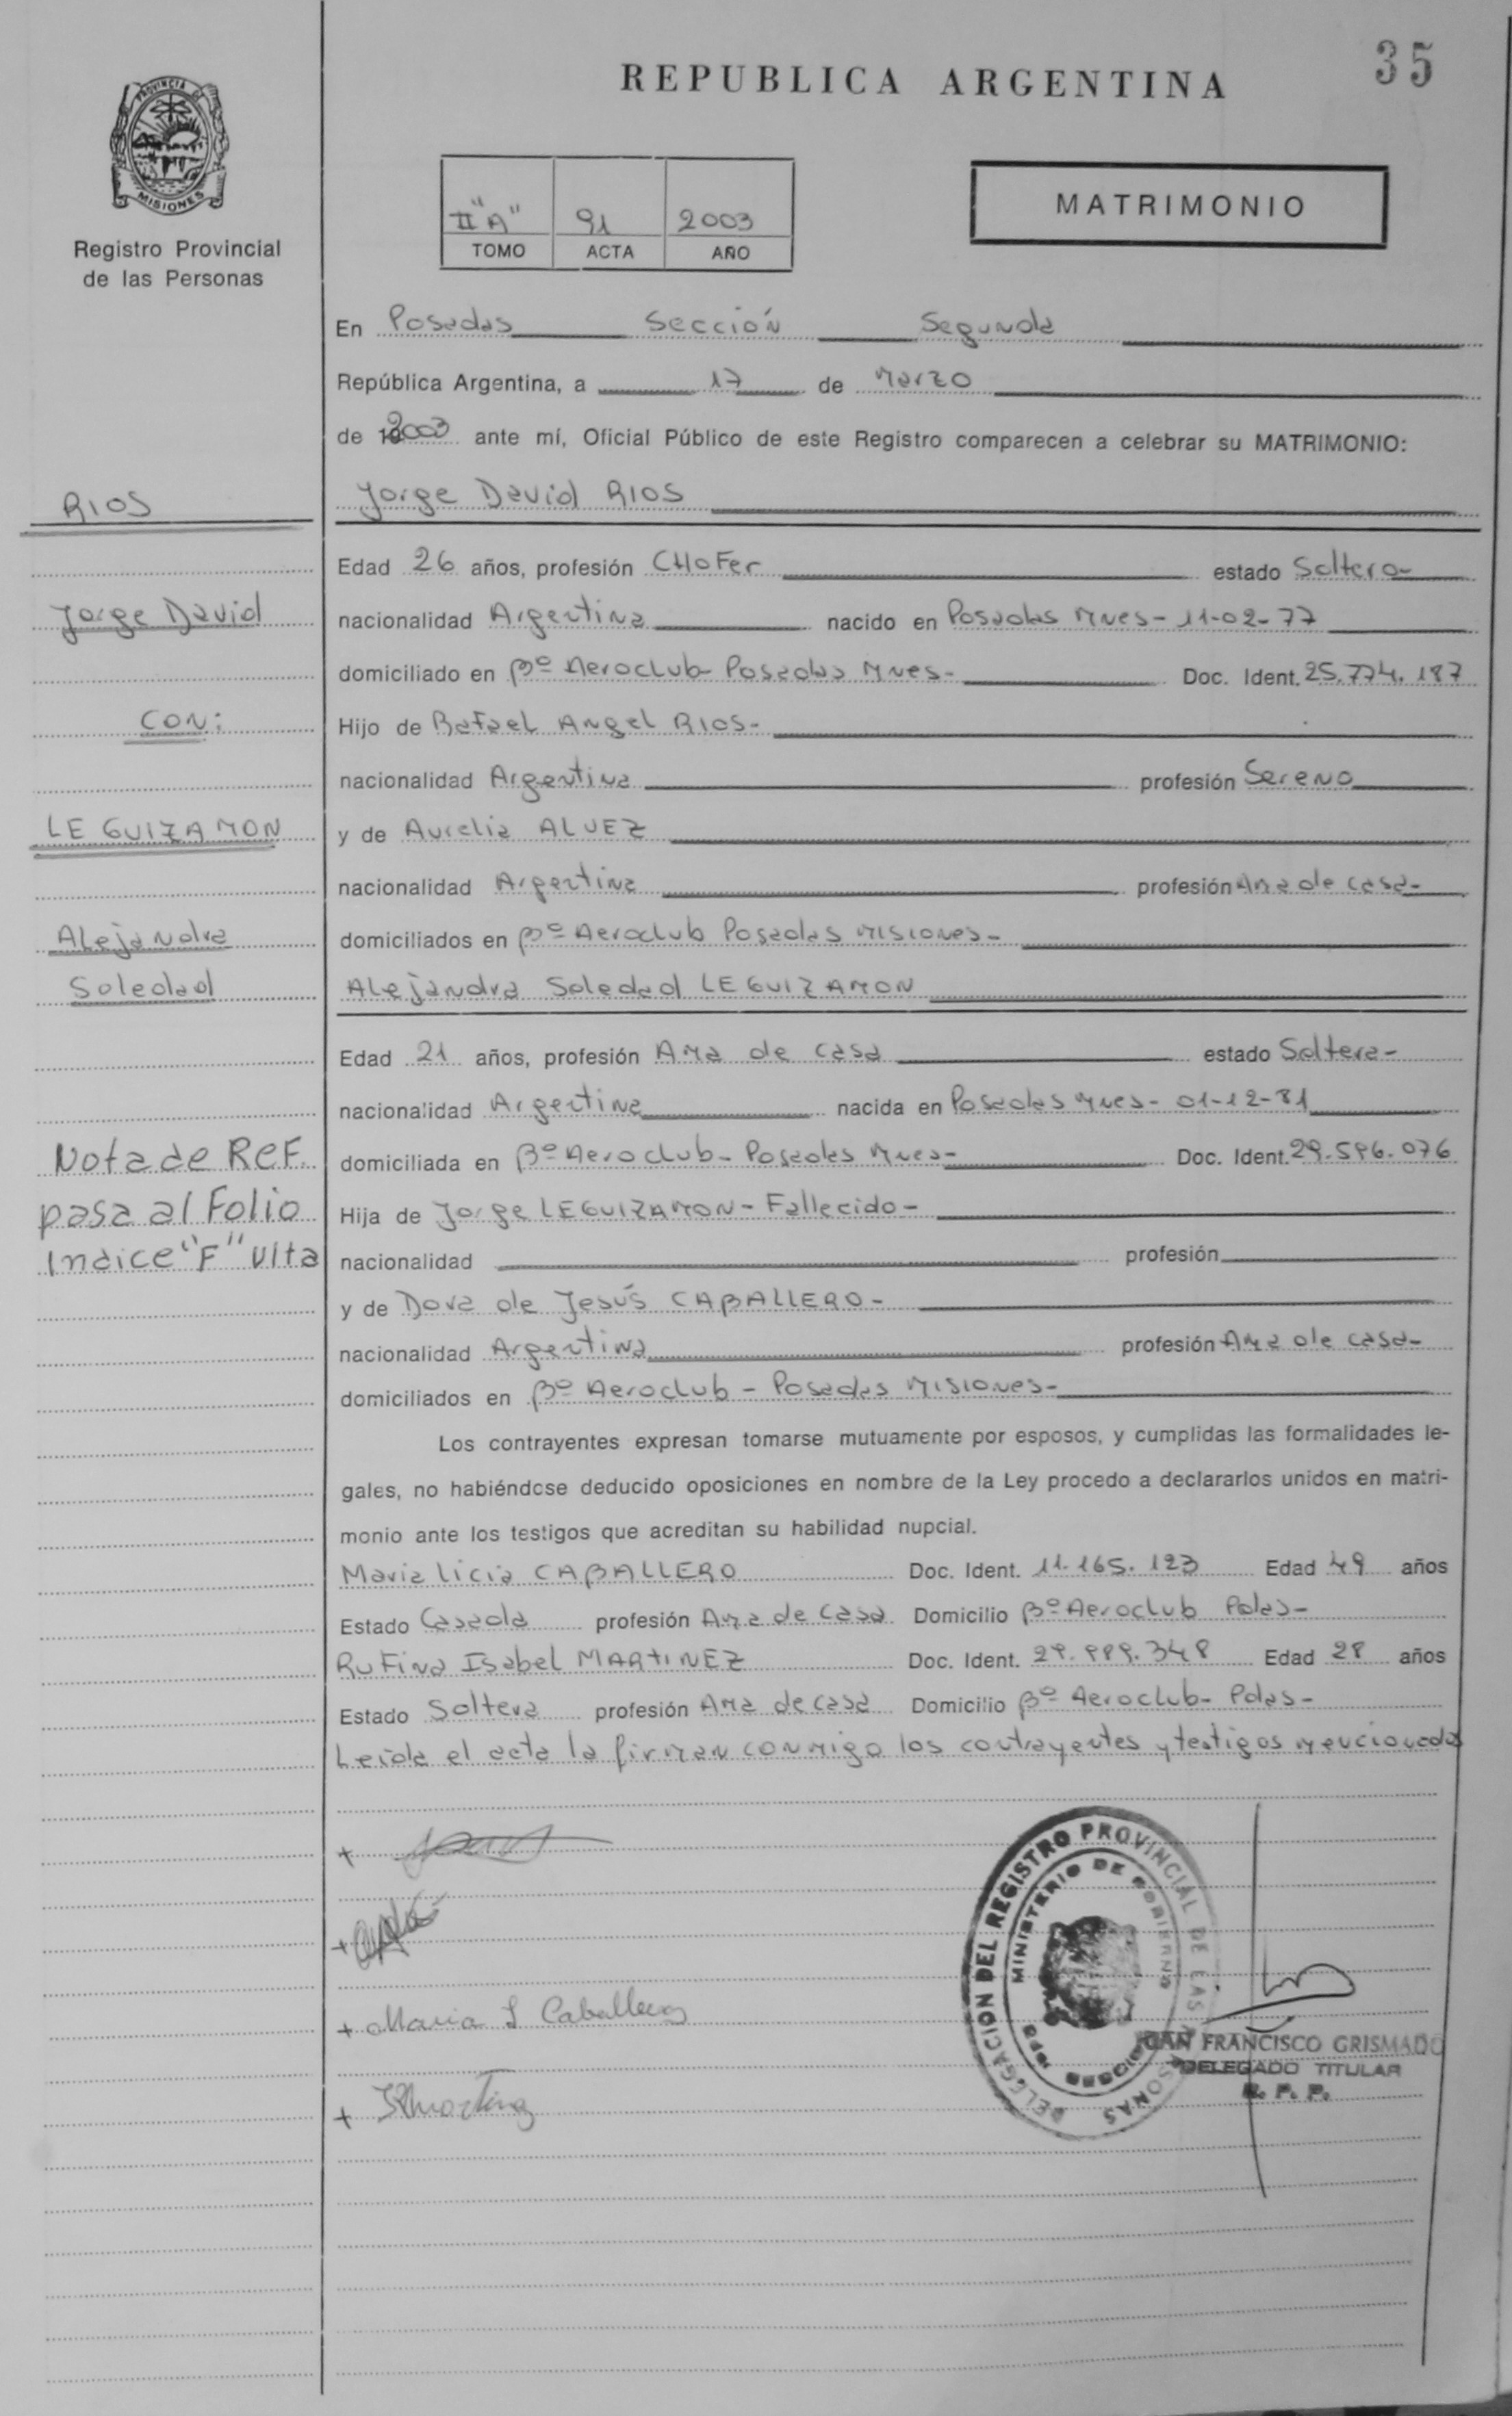 35
REPUBLICA ARGENTINA
PROVINCIA DE
MISIONES
Registro Provincial
de las Personas
II "A" 91 2003
TOMO ACTA AÑO
MATRIMONIO
En Posadas Sección Segunda
República Argentina, a 17 de Marzo
de 2003 ante mí, Oficial Público de este Registro comparecen a celebrar su MATRIMONIO:
RIOS
Jorge David RIOS
Edad 26 años, profesión CHOFer estado Soltero-
Jorge David
nacionalidad Argentina nacido en Posadas Mnes- 11-02-77
domiciliado en Bº Aeroclub Posadas Mnes- Doc. Ident. 25.774.187
CON:
Hijo de Rafael Angel RIOS-
nacionalidad Argentina profesión Sereno
LEGUIZAMON
y de Aurelia ALVEZ
nacionalidad Argentina profesión Ama de casa-
Alejandra
domiciliados en Bº Aeroclub Posadas Misiones-
Soledad
Alejandra Soledad LEGUIZAMON
Edad 21 años, profesión Ama de casa estado Soltera-
nacionalidad Argentina nacida en Posadas Mnes- 01-12-81
Nota de Ref.
domiciliada en Bº Aeroclub- Posadas Mnes- Doc. Ident. 29.596.076
pasa al Folio
Hija de Jorge LEGUIZAMON- Fallecido-
Indice "F" Vlta
nacionalidad profesión
y de Dora de Jesús CABALLERO-
nacionalidad Argentina profesión Ama de casa-
domiciliados en Bº Aeroclub - Posadas Misiones-
Los contrayentes expresan tomarse mutuamente por esposos, y cumplidas las formalidades le-
gales, no habiéndose deducido oposiciones en nombre de la Ley procedo a declararlos unidos en matri-
monio ante los testigos que acreditan su habilidad nupcial.
Maria Licia CABALLERO Doc. Ident. 11.165.123 Edad 49 años
Estado Casada profesión Ama de Casa Domicilio Bº Aeroclub Pdas-
Rufina Isabel MARTINEZ Doc. Ident. 29.989.348 Edad 28 años
Estado Soltera profesión Ama de casa Domicilio Bº Aeroclub- Pdas-
Leida el acta la firman conmigo los contrayentes y testigos mencionados
+
+
+ Maria L Caballero
+
DELEGACION DEL REGISTRO PROVINCIAL DE LAS PERSONAS
MINISTERIO DE GOBIERNO
MISIONES
JUAN FRANCISCO GRISMADO
DELEGADO TITULAR
R. P. P.